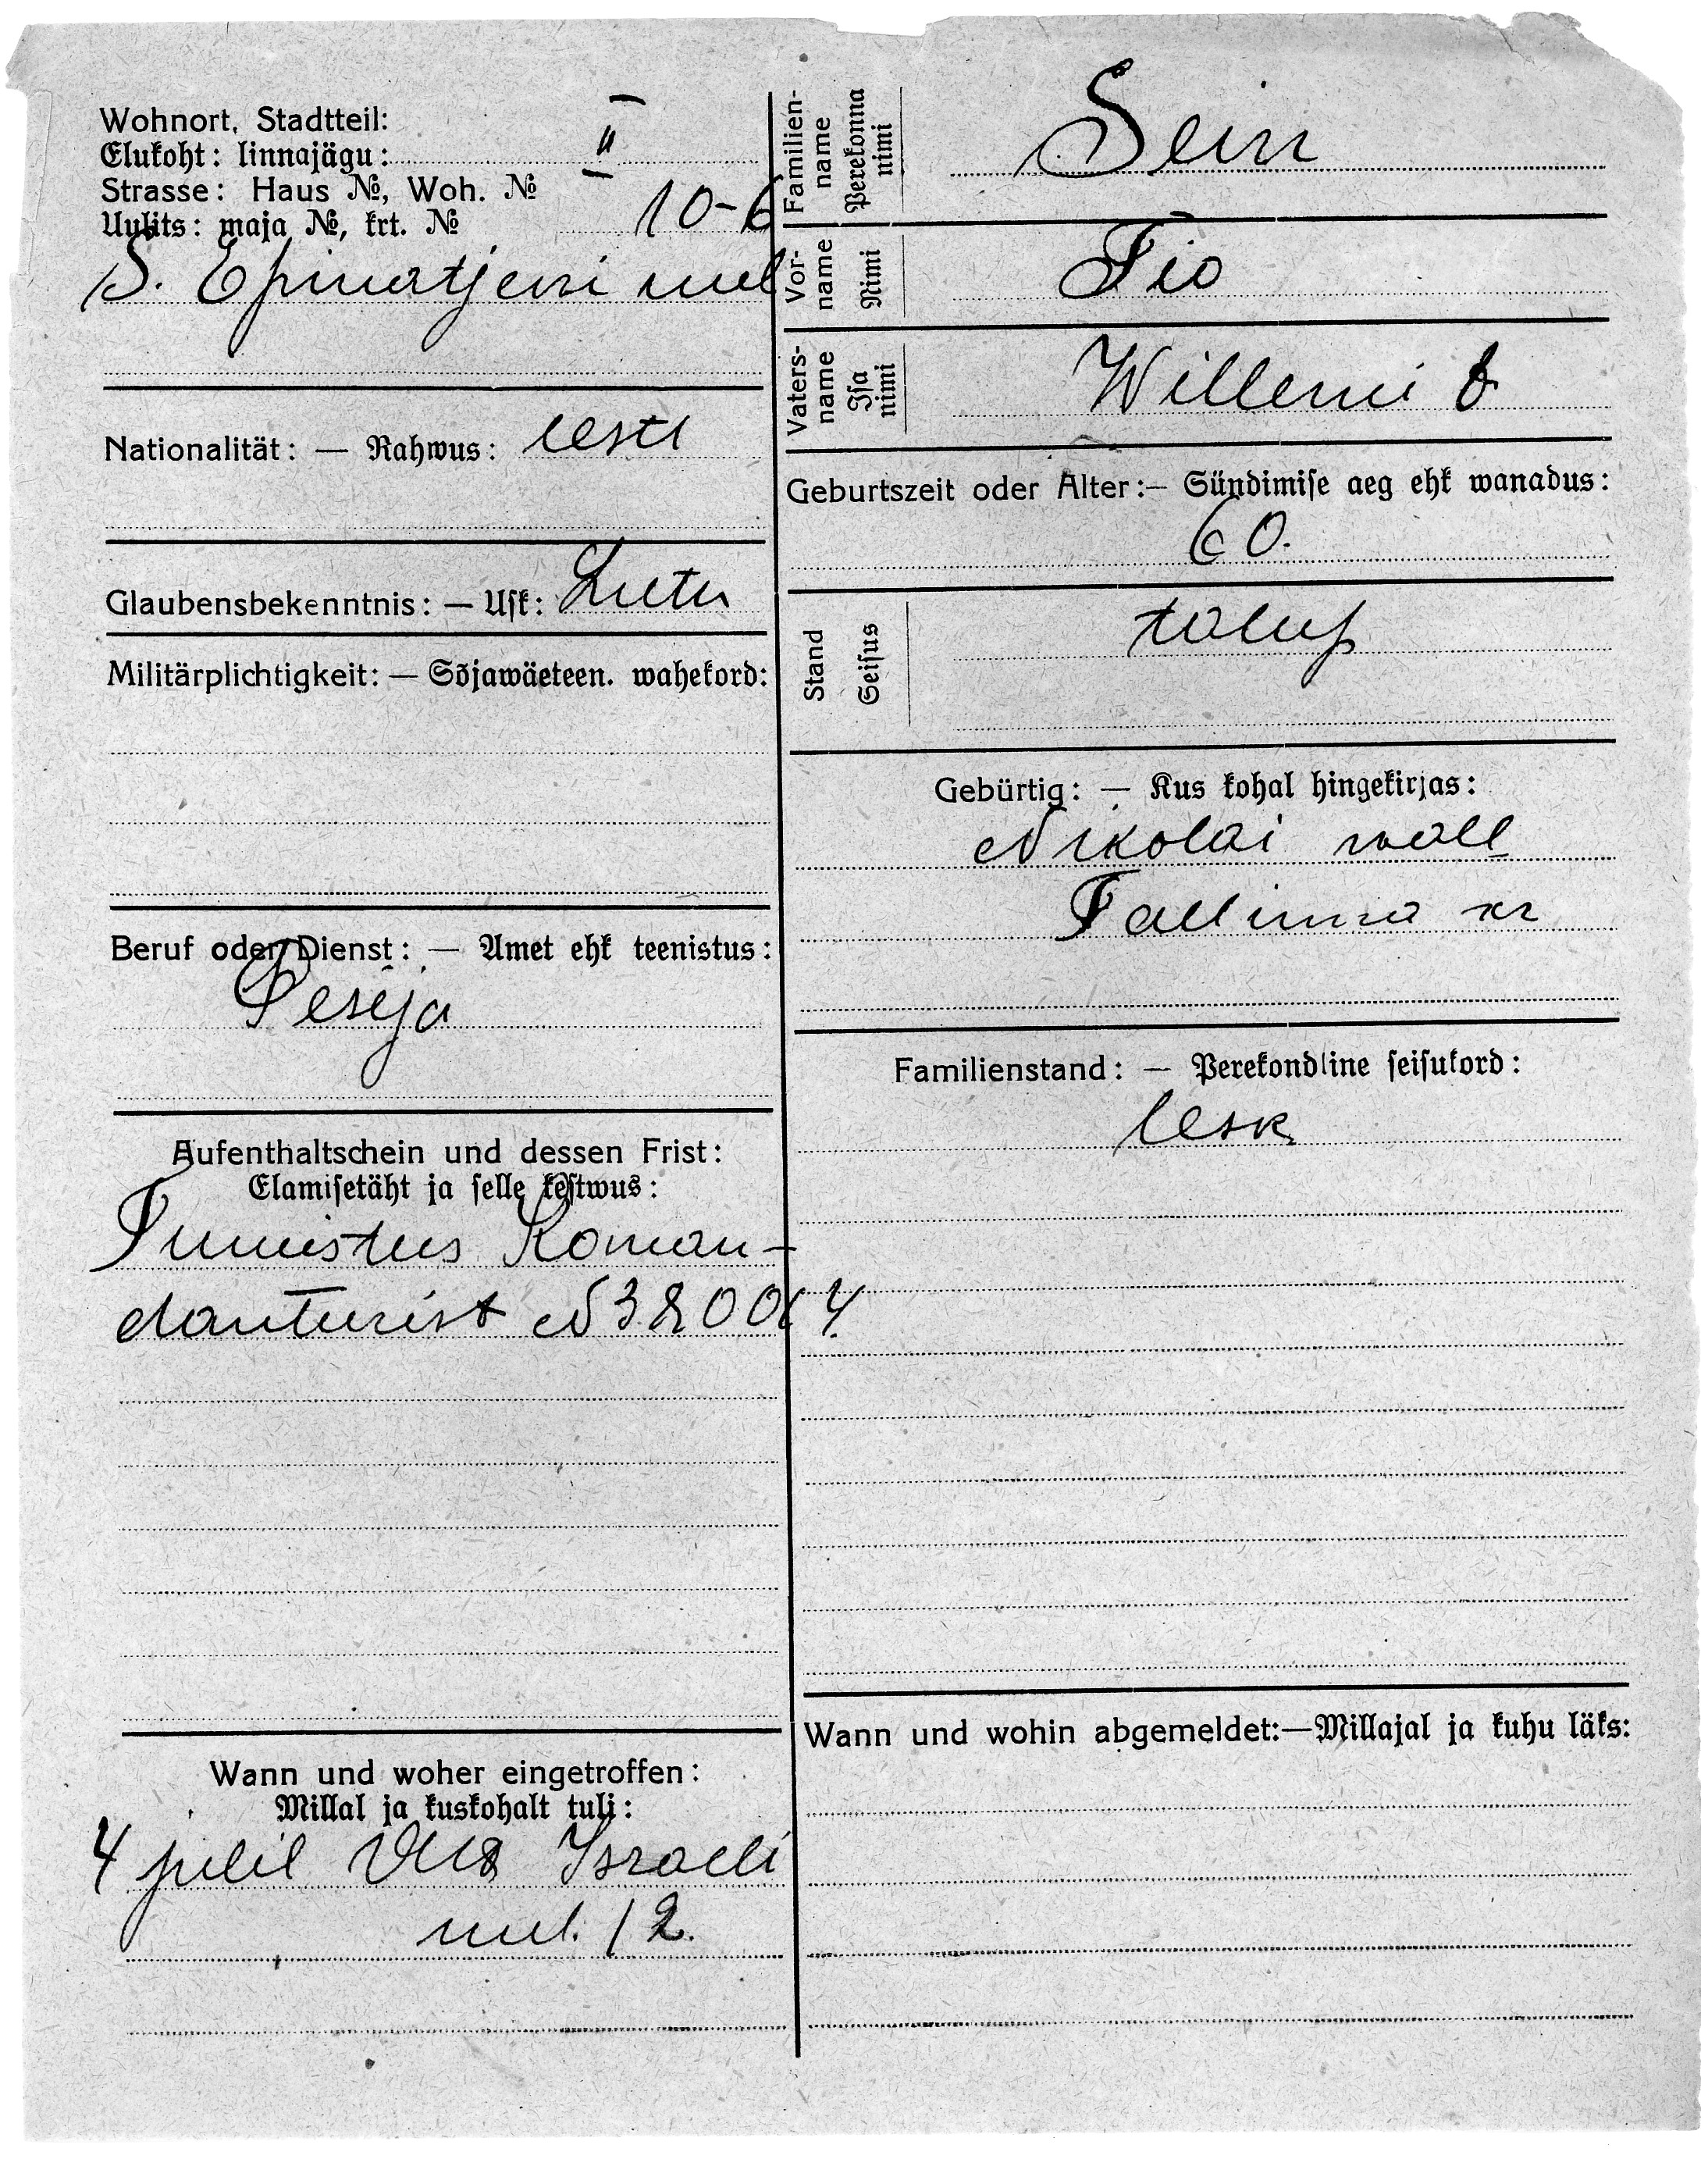 Wohnort, Stadtteil:
Elukoht: linnajägu: II
Strasse: Haus №, Woh. №
Uulits: maja №, krt. № 10-6
S. Epinatjevi uul
Nationalität: — Rahwus: eesti
Glaubensbekenntnis: — Usk: Luteri
Militärplichtigkeit: — Sõjawäeteen. wahekord:
Beruf oder Dienst: — Amet ehk teenistus:
Peseja
Aufenthaltschein und dessen Frist:
Elamisetäht ja selle kestwus:
Tunnistus Koman-
danturist N 32004
Wann und woher eingetroffen:
Millal ja kuskohalt tuli:
4 julil Israeli
uul. 12.
Familien-
name
Perekonna
nimi
Sein
Vor-
name
Nimi
Tio
Vaters-
name
Isa
nimi
Willemi t
Geburtszeit oder Alter:— Sündimise aeg ehk wanadus:
60.
Stand
Seisus
talup
Gebürtig: — Kus kohal hingekirjas:
Nikolai wall
Tallinna kr
Familienstand: — Perekondline seisukord:
lesk
Wann und wohin abgemeldet:—Millajal ja kuhu läks: